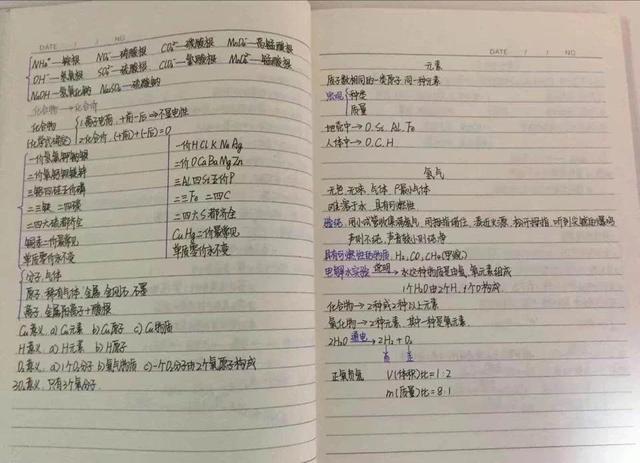 DATE / / NO
NH₄⁺—铵根 NO₃⁻—硝酸根 CO₃²⁻—碳酸根 MnO₄⁻—高锰酸根
OH⁻—氢氧根 SO₄²⁻—硫酸根 ClO₃⁻—氯酸根 MnO₄²⁻—锰酸根
NaOH—氢氧化钠 Na₂SO₄—硫酸钠
化合物→化合价
化合物 1.离子电荷,+前-后→不显电性
2.化合价,(+前)+(-后)=0
一价氢氯钾钠银
二价氧钙钡镁锌
三铝四硅五价磷
二三铁 二四碳
二四六硫都齐全
铜汞二价最常见
单质零价永不变
一价H Cl K Na Ag
二价O Ca Ba Mg Zn
三Al 四Si 五价P
二三Fe 二四C
二四六S都齐全
Cu Hg二价最常见
单质零价永不变
分子.气体
原子.稀有气体.金属.金刚石.石墨
离子.金属阳离子+酸根
Cu意义. a) Cu元素 b) Cu原子 c) Cu物质
H意义. a) H元素 b) H原子
O₂意义. a) 1个O₂分子 b) 氧气物质 c) 一个O₂分子由2个氧原子构成
3O₂意义. 只有3个氧分子.
DATE / / NO
元素
质子数相同的一类原子 同一种元素
种类
质量
地壳中→O. Si. Al. Fe
人体中→O. C. H
氢气
无色.无味.气体
难溶于水.具有可燃性
声则不纯,声音较小则纯净
具有可燃性的物质. H₂, CO, CH₄(甲烷)
电解水实验 说明→水这种物质是由氢.氧元素组成
1个H₂O由2个H,1个O构成
化合物→2种或2种以上元素
氧化物→2种元素.其中一种是氧元素.
2H₂O 通电→ 2H₂ + O₂
正氧负氢 V(体积)比=1:2
m(质量)比=8:1